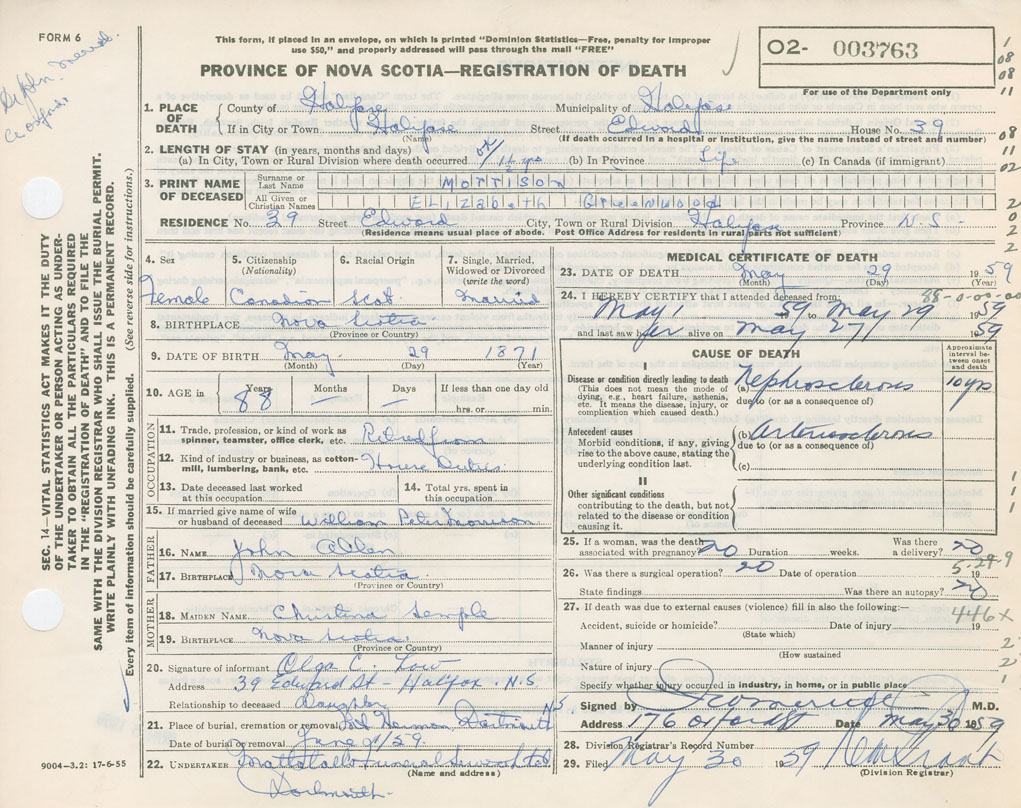 FORM 6
This form, if placed in an envelope, on which is printed "Dominion Statistics—Free, penalty for improper
use $50," and properly addressed will pass through the mail "FREE"
PROVINCE OF NOVA SCOTIA—REGISTRATION OF DEATH
O2- 003763
For use of the Department only
SEC. 14—VITAL STATISTICS ACT MAKES IT THE DUTY
OF THE UNDERTAKER OR PERSON ACTING AS UNDER-
TAKER TO OBTAIN ALL THE PARTICULARS REQUIRED
IN THE "REGISTRATION OF DEATH" AND FILE THE
SAME WITH THE DIVISION REGISTRAR WHO SHALL ISSUE THE BURIAL PERMIT.
WRITE PLAINLY WITH UNFADING INK. THIS IS A PERMANENT RECORD.
Every item of information should be carefully supplied. (See reverse side for instructions.)
1. PLACE OF DEATH County of Halifax Municipality of Halifax
If in City or Town Halifax Street Edward House No. 39
(Name) (If death occurred in a hospital or institution, give the name instead of street and number)
2. LENGTH OF STAY (in years, months and days)
(a) In City, Town or Rural Division where death occurred 1½ yrs (b) In Province Life (c) In Canada (if immigrant)
3. PRINT NAME OF DECEASED Surname or Last Name Morrison
All Given or Christian Names Elizabeth Greenwood
RESIDENCE No. 39 Street Edward City, Town or Rural Division Halifax Province N.S.
(Residence means usual place of abode. Post Office Address for residents in rural parts not sufficient)
4. Sex 5. Citizenship (Nationality) 6. Racial Origin 7. Single, Married, Widowed or Divorced (write the word)
Female Canadian Scot. Married
8. BIRTHPLACE Nova Scotia
(Province or Country)
9. DATE OF BIRTH May 29 1871
(Month) (Day) (Year)
10. AGE in Years Months Days If less than one day old
88 — — hrs. or min.
OCCUPATION
11. Trade, profession, or kind of work as spinner, teamster, office clerk, etc. Retired from
12. Kind of industry or business, as cotton-mill, lumbering, bank, etc. House Duties
13. Date deceased last worked at this occupation 14. Total yrs. spent in this occupation
15. If married give name of wife or husband of deceased William Peter Morrison
FATHER
16. NAME John Allen
17. BIRTHPLACE Nova Scotia
(Province or Country)
MOTHER
18. MAIDEN NAME Christina Semple
19. BIRTHPLACE Nova Scotia
(Province or Country)
20. Signature of informant Olga C. Low
Address 39 Edward St - Halifax - N.S
Relationship to deceased Daughter
21. Place of burial, cremation or removal Hermon Dartmouth N.S
Date of burial or removal June 1/59.
22. UNDERTAKER Mattatall Funeral Service Ltd
(Name and address)
Dartmouth
9004-3.2: 17-6-55
MEDICAL CERTIFICATE OF DEATH
23. DATE OF DEATH May 29 1959
(Month) (Day) (Year)
88-0-00-00
24. I HEREBY CERTIFY that I attended deceased from:
May 1 59 to May 29 1959
and last saw her alive on May 27 1959
CAUSE OF DEATH
Approximate interval between onset and death
I
Disease or condition directly leading to death
(This does not mean the mode of dying, e.g., heart failure, asthenia, etc. It means the disease, injury, or complication which caused death.)
(a) Nephrosclerosis 10 yrs
due to (or as a consequence of)
Antecedent causes
Morbid conditions, if any, giving rise to the above cause, stating the underlying condition last.
(b) Arteriosclerosis
due to (or as a consequence of)
(c)
II
Other significant conditions
contributing to the death, but not related to the disease or condition causing it.
25. If a woman, was the death associated with pregnancy? No Duration weeks. Was there a delivery? No
5-29-9
26. Was there a surgical operation? No Date of operation 19
State findings Was there an autopsy? No
27. If death was due to external causes (violence) fill in also the following:—
446X
Accident, suicide or homicide? Date of injury 19
(State which)
Manner of injury
(How sustained
Nature of injury
Specify whether injury occurred in industry, in home, or in public place
Signed by M.D.
Address 176 Oxford St Date May 30 1959
28. Division Registrar's Record Number
29. Filed May 30 1959
(Division Registrar)